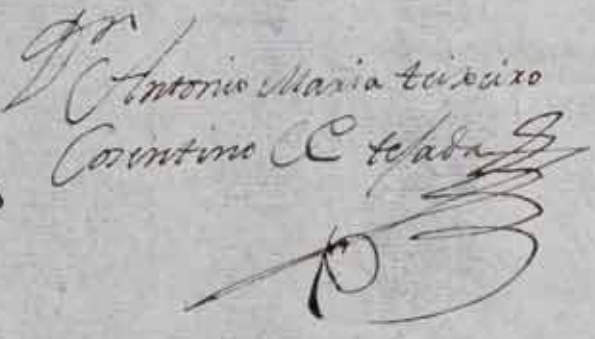 Dn
Antonio Maria teixeiro
Corentino CC tesada